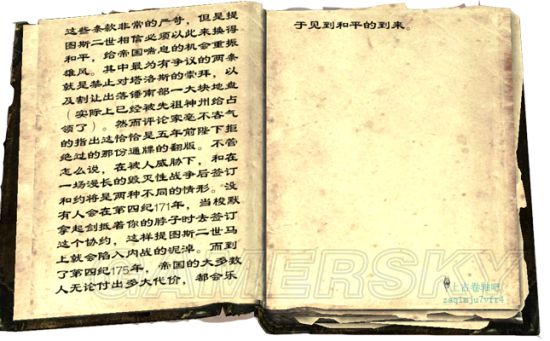 这些条款非常的严苛，但是提
图斯二世相信必须以此来换得
和平，给帝国喘息的机会重振
雄风。其中最为有争议的两条
就是禁止对塔洛斯的崇拜，以
及割让出落锤南部一大块地盘
（实际上已经被先祖神州给占
领了）。然而评论家毫不客气
的指出这恰恰是五年前陛下拒
绝过的那份通牒的翻版。不管
怎么说，在被人威胁下，和在
一场漫长的毁灭性战争后签订
和约将是两种不同的情形。没
有人会在第四纪171年，当梭默
拿起剑抵着你的脖子时去签订
这个协约，这样提图斯二世马
上就会陷入内战的泥淖。而到
了第四纪175年，帝国的大多数
人无论付出多大代价，都会乐
于见到和平的到来。
GAMERSKY
上古卷轴吧
zaqimju7vfr4